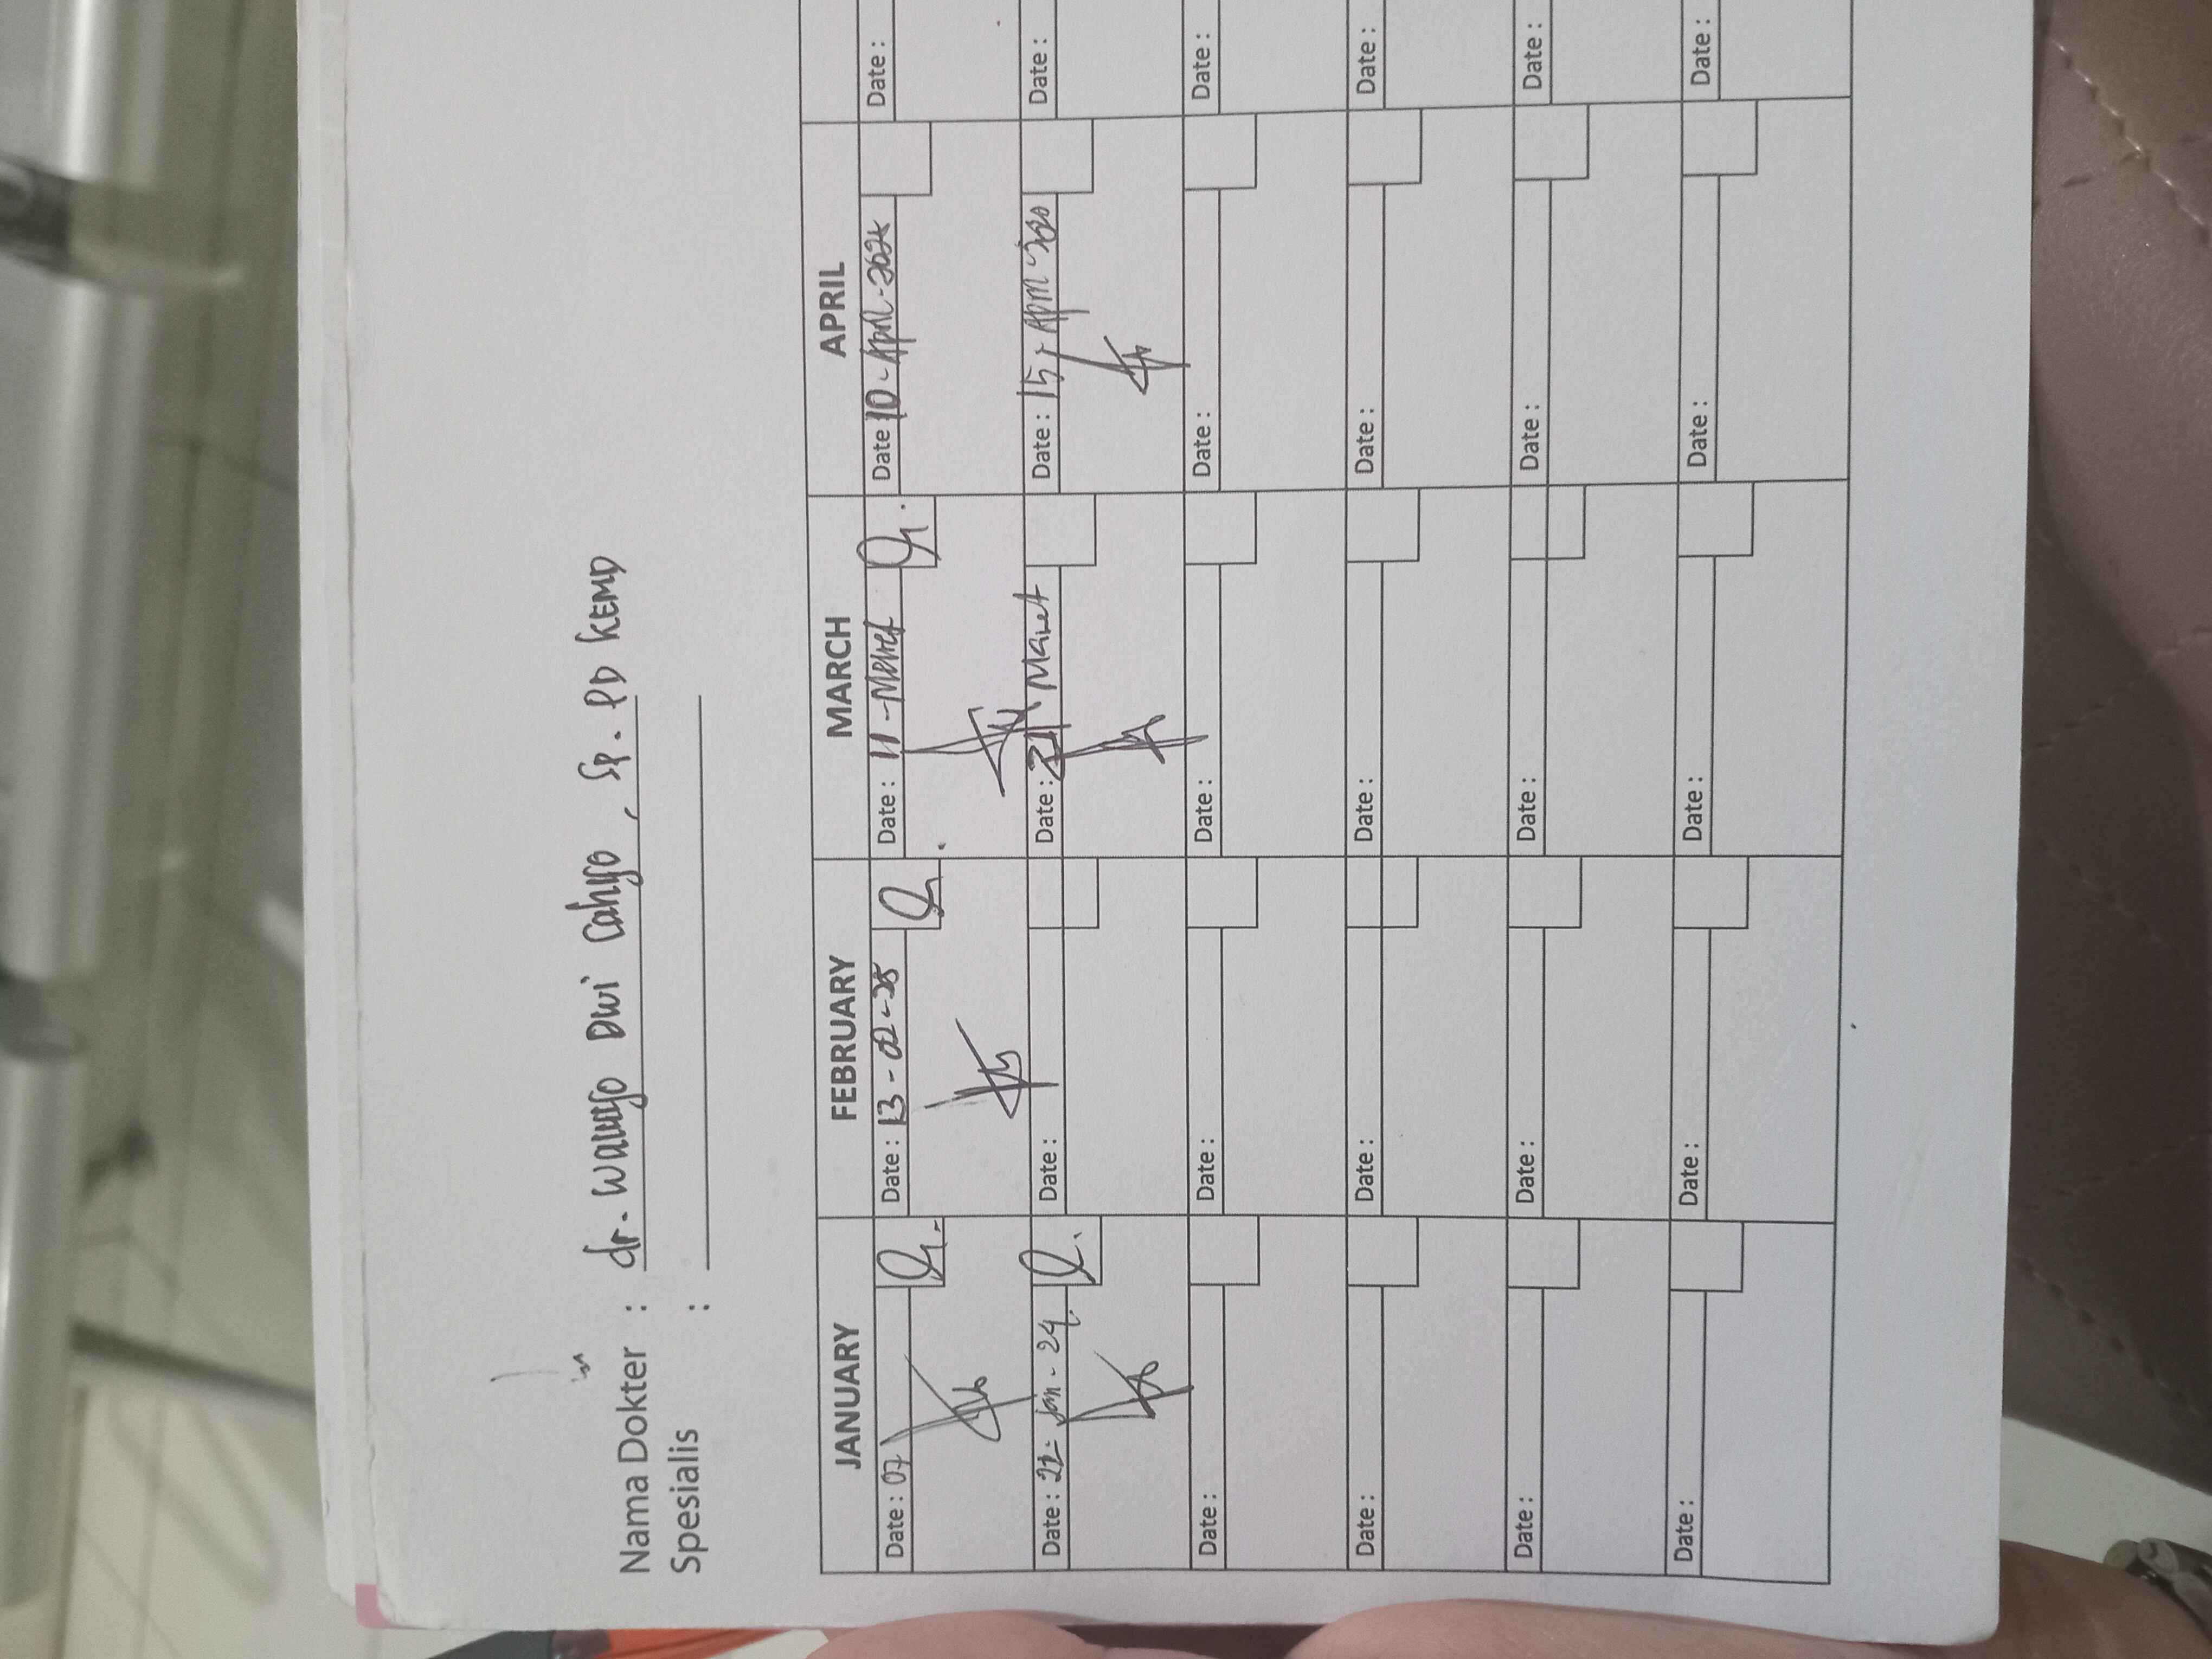 Nama Dokter : dr. Waluyo Dwi Cahyo, Sp. PD KEMD
Spesialis :
JANUARY FEBRUARY MARCH APRIL
Date : 07 Date : 13 - 02 - 25 Date : 11 - Maret Date 10 - April - 2025 Date :
Date : 22 - Jan - 24 Date : Date : 21 Maret Date : 15 - April Date :
Date : Date : Date : Date : Date :
Date : Date : Date : Date : Date :
Date : Date : Date : Date : Date :
Date : Date : Date : Date : Date :